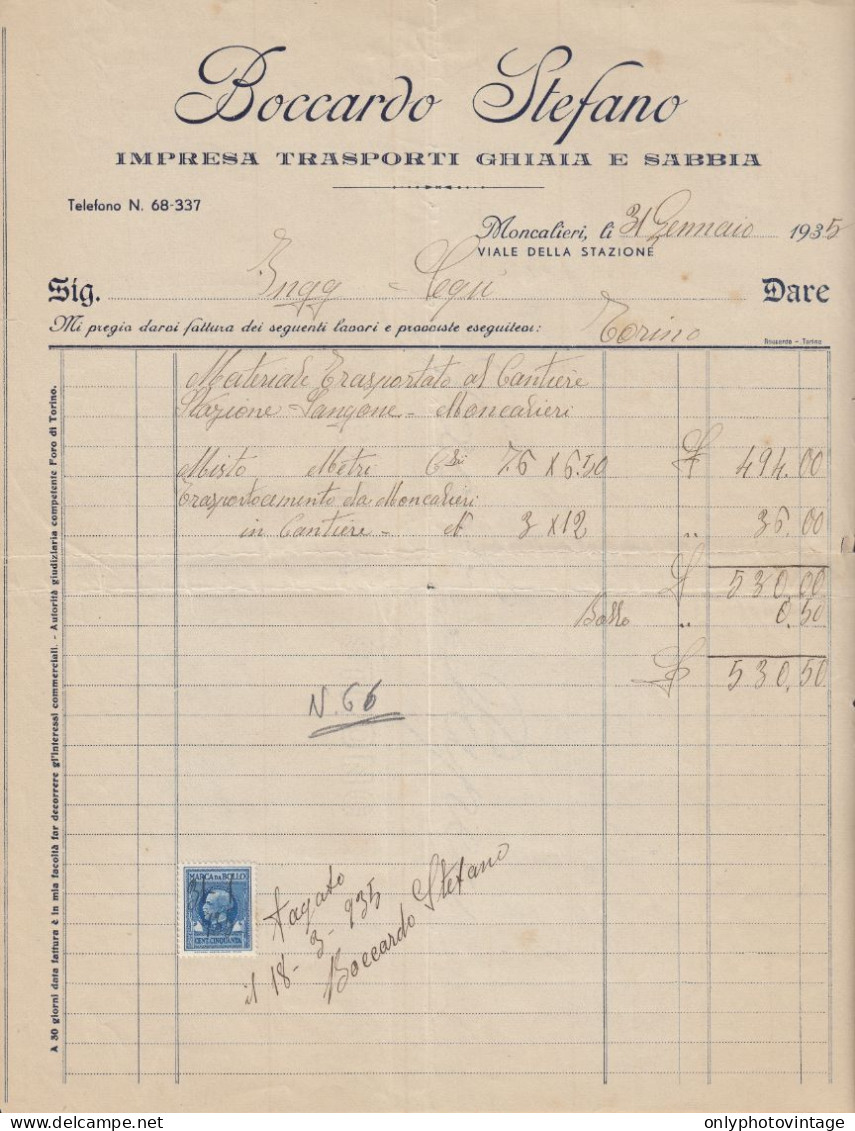 Boccardo Stefano
IMPRESA TRASPORTI GHIAIA E SABBIA
Telefono N. 68-337
Moncalieri, li 31 Gennaio 1935
VIALE DELLA STAZIONE
Sig. Ingg Dare
Mi pregio darvi fattura dei seguenti lavori e provviste eseguitevi: Torino
Materiale Trasportato al Cantiere
Stazione Sangone - Moncalieri
Misto Metri Cbi 76 x 6.50 £ 494.00
Trasporto cemento da Moncalieri
in Cantiere - N 3 x 12 " 36.00
£ 530.00
Bollo " 0.50
£ 530.50
N. 66
MARCA DA BOLLO
CENT. CINQUANTA
Pagato
il 18-3-935
Boccardo Stefano
A 30 giorni data fattura è in mia facoltà far decorrere gl'interessi commerciali. - Autorità giudiziaria competente Foro di Torino.
onlyphotovintage